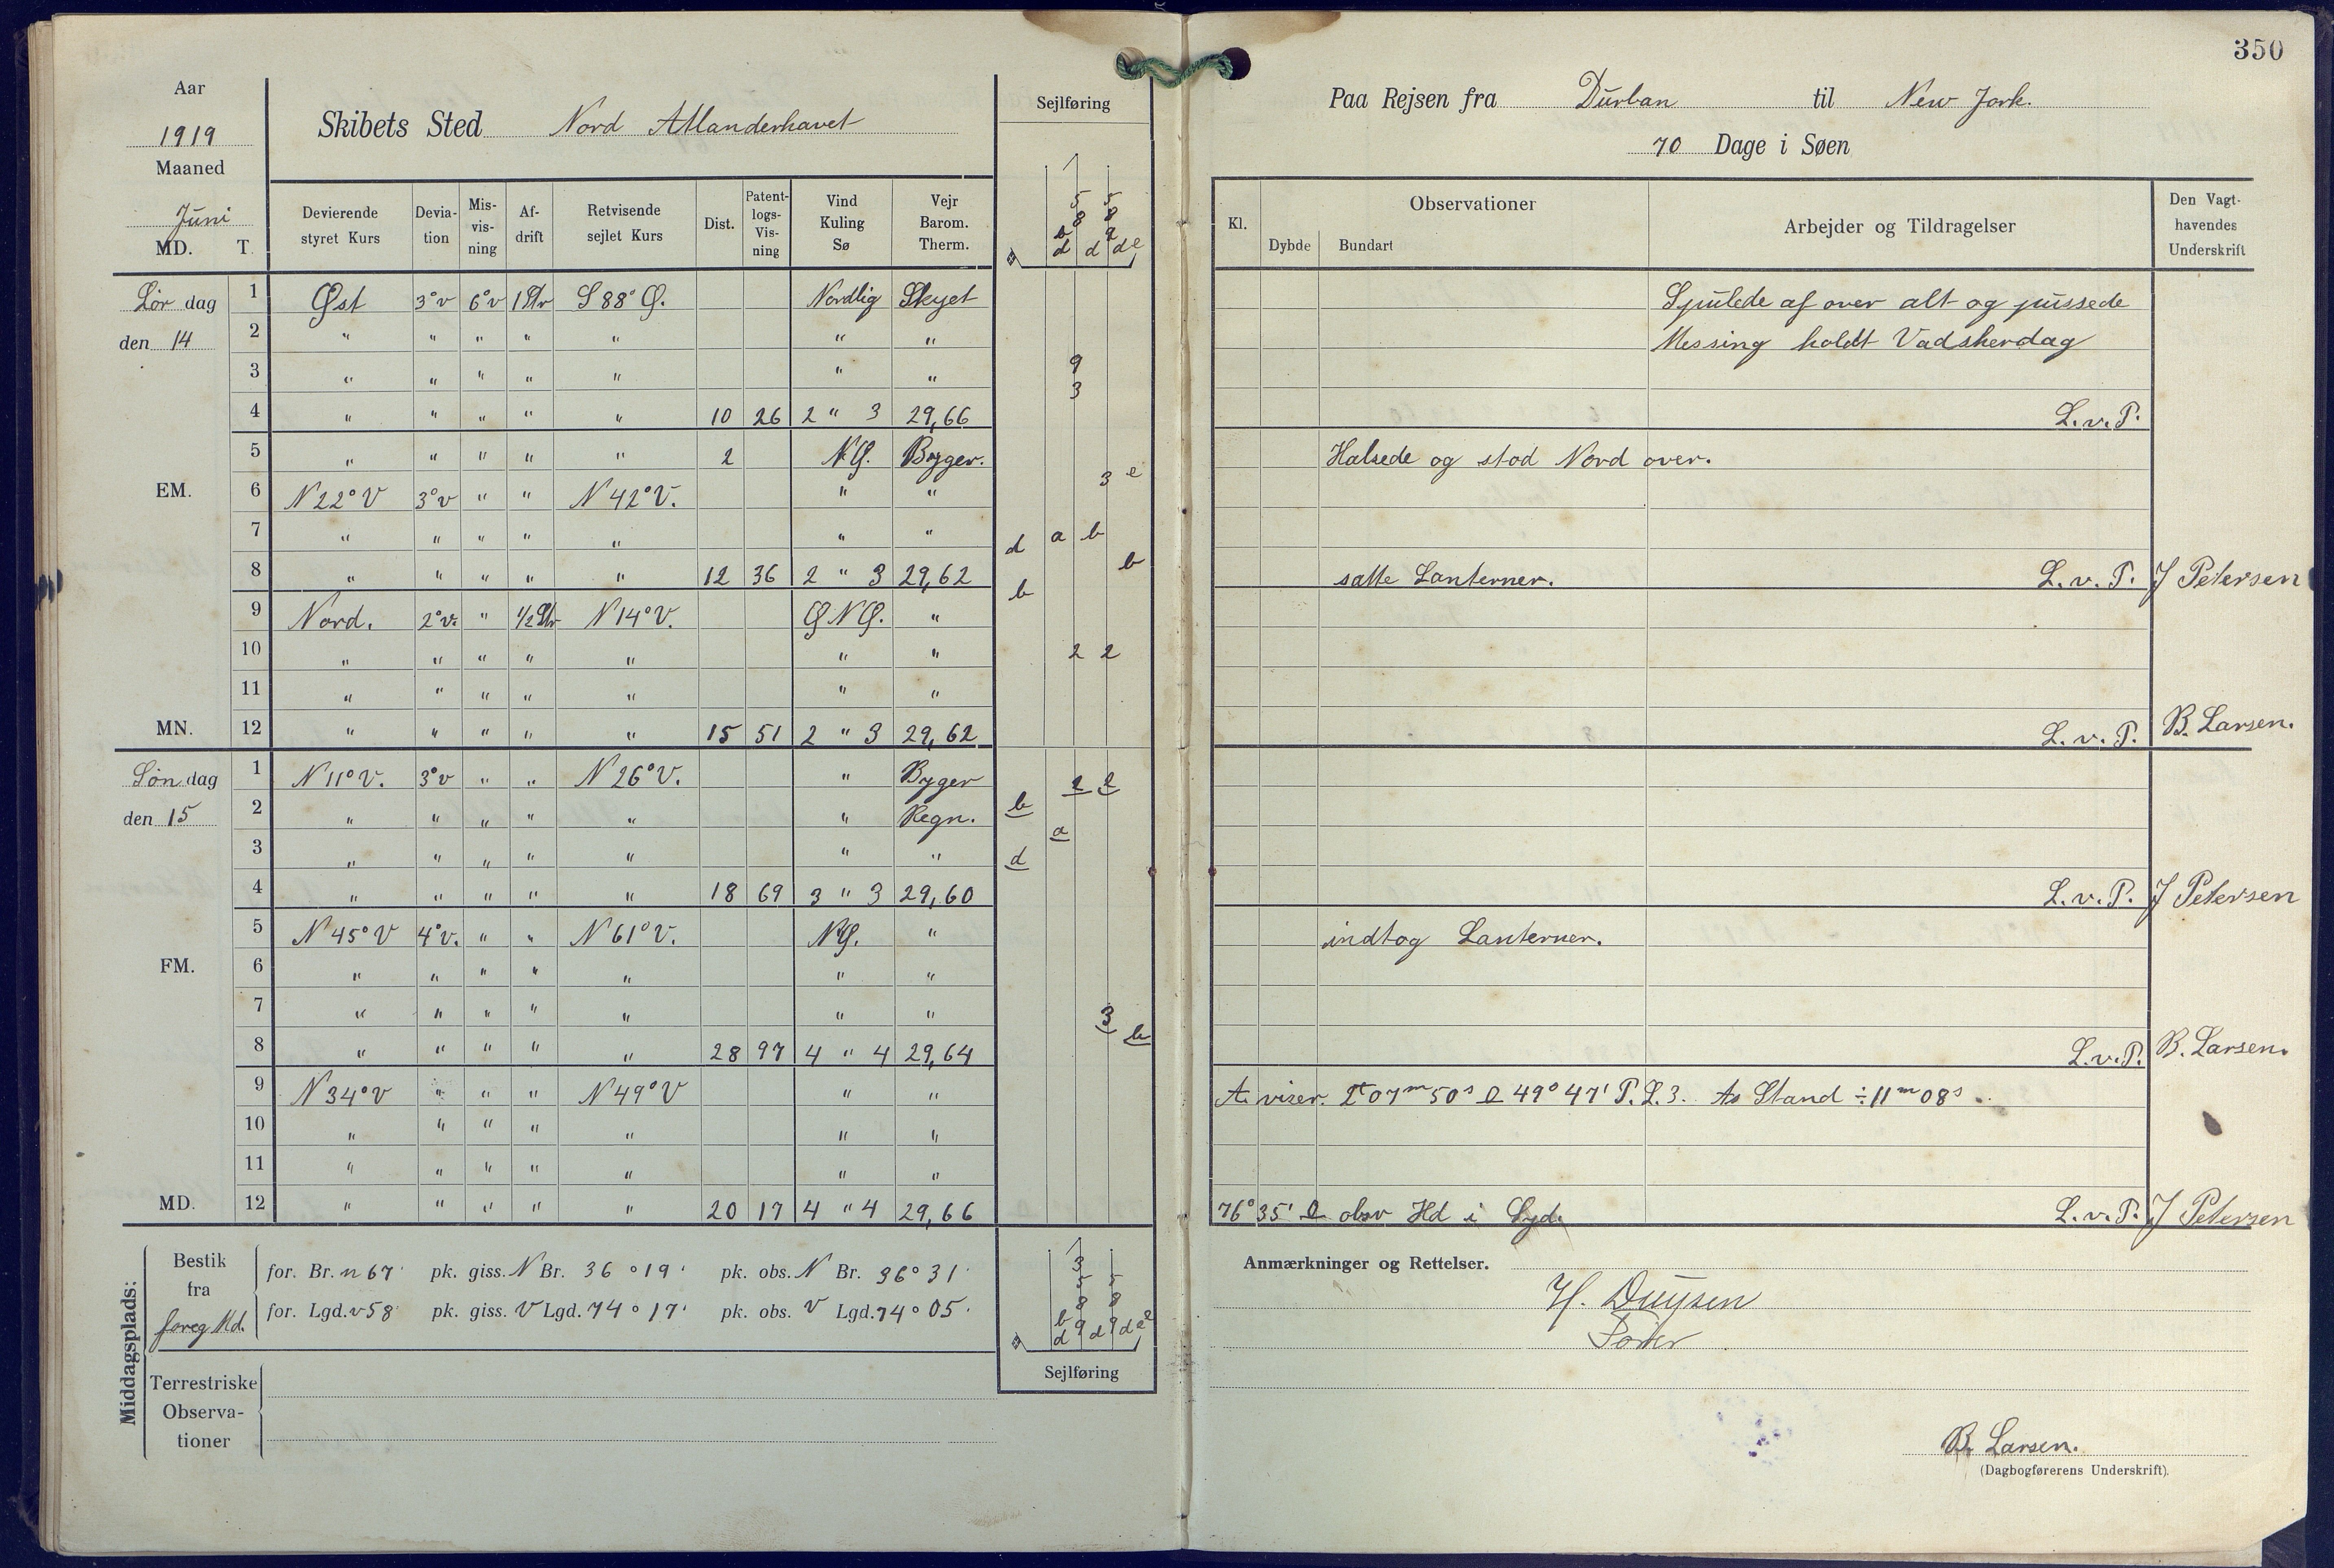 350
Aar
1919
Maaned
Juni
MD. T.
Skibets Sted Nord Atlanderhavet
Sejlføring
Paa Rejsen fra Durban til New Jork.
70 Dage i Søen
Devierende styret Kurs | Devia- tion | Mis- vis- ning | Af- drift | Retvisende sejlet Kurs | Dist. | Patent- logs- Vis- ning | Vind Kuling Sø | Vejr Barom. Therm.
Kl. | Observationer | Dybde | Bundart | Arbejder og Tildragelser | Den Vagt- havendes Underskrift
1
5 5
8 8
b 2
d d d e
Lør dag 1 Øst 3°v 6°v 1 Str S 88° Ø. Nordlig Skyet Spulede af over alt og pussede
den 14 2 " " " " " " " Messing holdt Vadskerdag
3 " " " " " " " 9
3
4 " " " " " 10 26 2 " 3 29,66 L.v.P.
5 " " " " " 2 NØ. Byger. Halsede og stod Nord over.
EM. 6 N 22° V 3°v " " N 42° V. " " 3 e
7 " " " " " " " d a b
8 " " " " " 12 36 2 " 3 29,62 b satte Lanterner. L.v.P. J Petersen
9 Nord. 2°v. " 1/2 Str N 14° V. ØNØ. " b
10 " " " " " " " 2 2
11 " " " " " " "
MN. 12 " " " " " 15 51 2 " 3 29,62 L.v.P. B. Larsen.
Søn dag 1 N 11° V. 3°v " " N 26° V. " Byger 2 2
den 15 2 " " " " " " Regn. b a
3 " " " " " " " d
4 " " " " " 18 69 3 " 3 29,60 L.v.P. J Petersen
5 N 45° V 4°v. " " N 61° V. NØ. " indtog Lanterner.
FM. 6 " " " " " " "
7 " " " " " " " 3 b
8 " " " " " 28 97 4 " 4 29,64 L.v.P. B. Larsen.
9 N 34° V " " " N 49° V " " A. viser. 2t 07m 50s 49° 47' P.L.3. As Stand ÷ 11m 08s.
10 " " " " " " "
11 " " " " " " "
MD. 12 " " " " " 20 17 4 " 4 29,66 76° 35' obsv Hd i Syd. L.v.P. J Petersen
Middagsplads:
Bestik
fra
foreg Md.
for. Br. n 67' pk. giss. N Br. 36° 19' pk. obs. N Br. 36° 31'
for. Lgd. v 58' pk. giss. V Lgd. 74° 17' pk. obs. V Lgd. 74° 05'
1
3
5 5
8 8
b
d 9 d 9 d e
Sejlføring
Terrestriske
Observa-
tioner
Anmærkninger og Rettelser.
H. Duysen
B. Larsen.
(Dagbogførerens Underskrift).